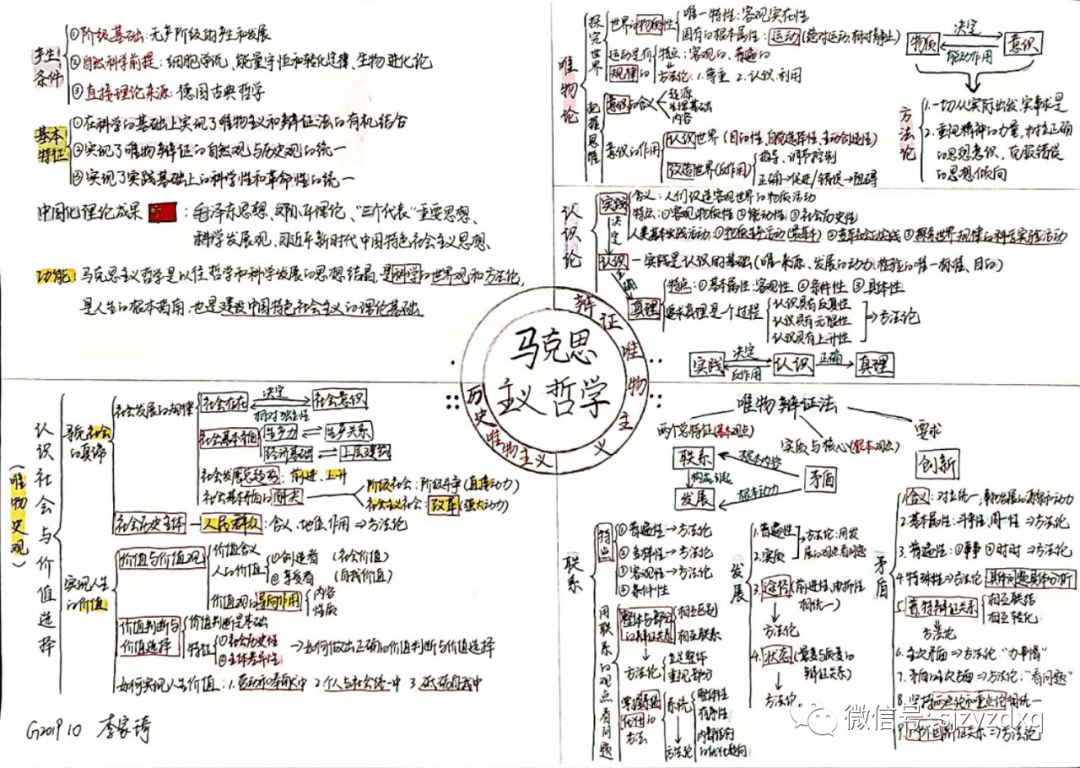 产生条件
①阶级基础：无产阶级的产生和发展
②自然科学前提：细胞学说、能量守恒和转化定律、生物进化论
③直接理论来源：德国古典哲学
基本特征
①在科学的基础上实现了唯物主义和辩证法的有机结合
②实现了唯物辩证的自然观与历史观的统一
③实现了实践基础上的科学性和革命性的统一
中国化理论成果：毛泽东思想、邓小平理论、“三个代表”重要思想、
科学发展观、习近平新时代中国特色社会主义思想、
功能 马克思主义哲学是以往哲学和科学发展的思想结晶，是科学的世界观和方法论，
是人生的根本指南，也是建设中国特色社会主义的理论基础
唯物论
探究世界
世界的物质性
唯一特性：客观实在性
固有的根本属性：运动(绝对运动，相对静止)
运动是有规律的
特点：客观的、普遍的
方法论：1.尊重 2.认识、利用
把握思维
意识的含义
起源
生理基础
内容
意识的作用
认识世界(目的性、自觉选择性、主动创造性)
改造世界(反作用)
指导、调节控制
正确→促进/错误→阻碍
物质
决定
能动作用
意识
方法论
1.一切从实际出发，实事求是
2.重视精神的力量，树立正确
的思想意识，克服错误
的思想倾向
认识论
实践
含义：人们改造客观世界的物质活动
特点：①客观物质性 ②能动性 ③社会历史性
人类基本实践活动：①物质生产活动(最基本)
③探索世界规律的科学实验活动
决定
认识
—实践是认识的基础(唯一来源、发展的动力、检验的唯一标准、目的)
真理
特点：①基本属性：客观性 ②条件性 ③具体性
追求真理是一个过程
认识具有反复性
认识具有无限性
认识具有上升性
⇒方法论
实践
决定
反作用
认识
正确
真理
马克思
主义哲学
辩证唯物主义
历史唯物主义
认识社会与价值选择
(唯物史观)
寻觅社会的真谛
社会发展的规律
社会存在
决定
相对独立性
社会意识
社会基本矛盾
生产力⇌生产关系
经济基础⇌上层建筑
社会发展总趋势：前进、上升
社会基本矛盾的解决
阶级社会：阶级斗争(直接动力)
社会主义社会：改革(强大动力)
社会历史主体—人民群众：含义、地位、作用⇒方法论
实现人生的价值
价值与价值观
价值含义
人的价值
①创造者 (社会价值)
②享受者 (自我价值)
价值观的导向作用
内容
性质
价值判断与价值选择
价值判断是基础
特征
①社会历史性
②主体差异性
→如何做出正确的价值判断与价值选择
如何实现人生价值：1.劳动和奉献中 2.个人与社会统一中 3.砥砺自我中
G2019 10 李家琦
唯物辩证法
两个总特征(基本观点)
实质与核心(根本观点)
要求
联系
发展
矛盾
创新
根本内容
根本动力
联系
特点
①普遍性→方法论
②多样性→方法论
③客观性→方法论
④条件性
用联系的观点看问题
整体与部分的辩证关系
相互区别
相互联系
方法论
立足整体
重视部分
掌握系统优化的方法
系统
整体性
有序性
内部结构的优化趋向
方法论
发展
1.普遍性
2.实质
方法论：用发展的观点看问题
3.途径(前进性、曲折性相统一)
方法论
4.状态(量变与质变的辩证关系)
方法论。
矛盾
1.含义：对立统一，事物发展的源泉和动力
2.基本属性：斗争性、同一性→方法论
3.普遍性：①事事 ②时时⇒方法论
4.特殊性⇒方法论：具体问题具体分析
5.普特辩证关系
相互联结
相互转化
方法论
6.主次矛盾→方法论：“办事情”
7.矛盾的主次方面⇒方法论：“看问题”
8.坚持两点论和重点论相统一
⇒方法论
微信号: sjzyzdxq